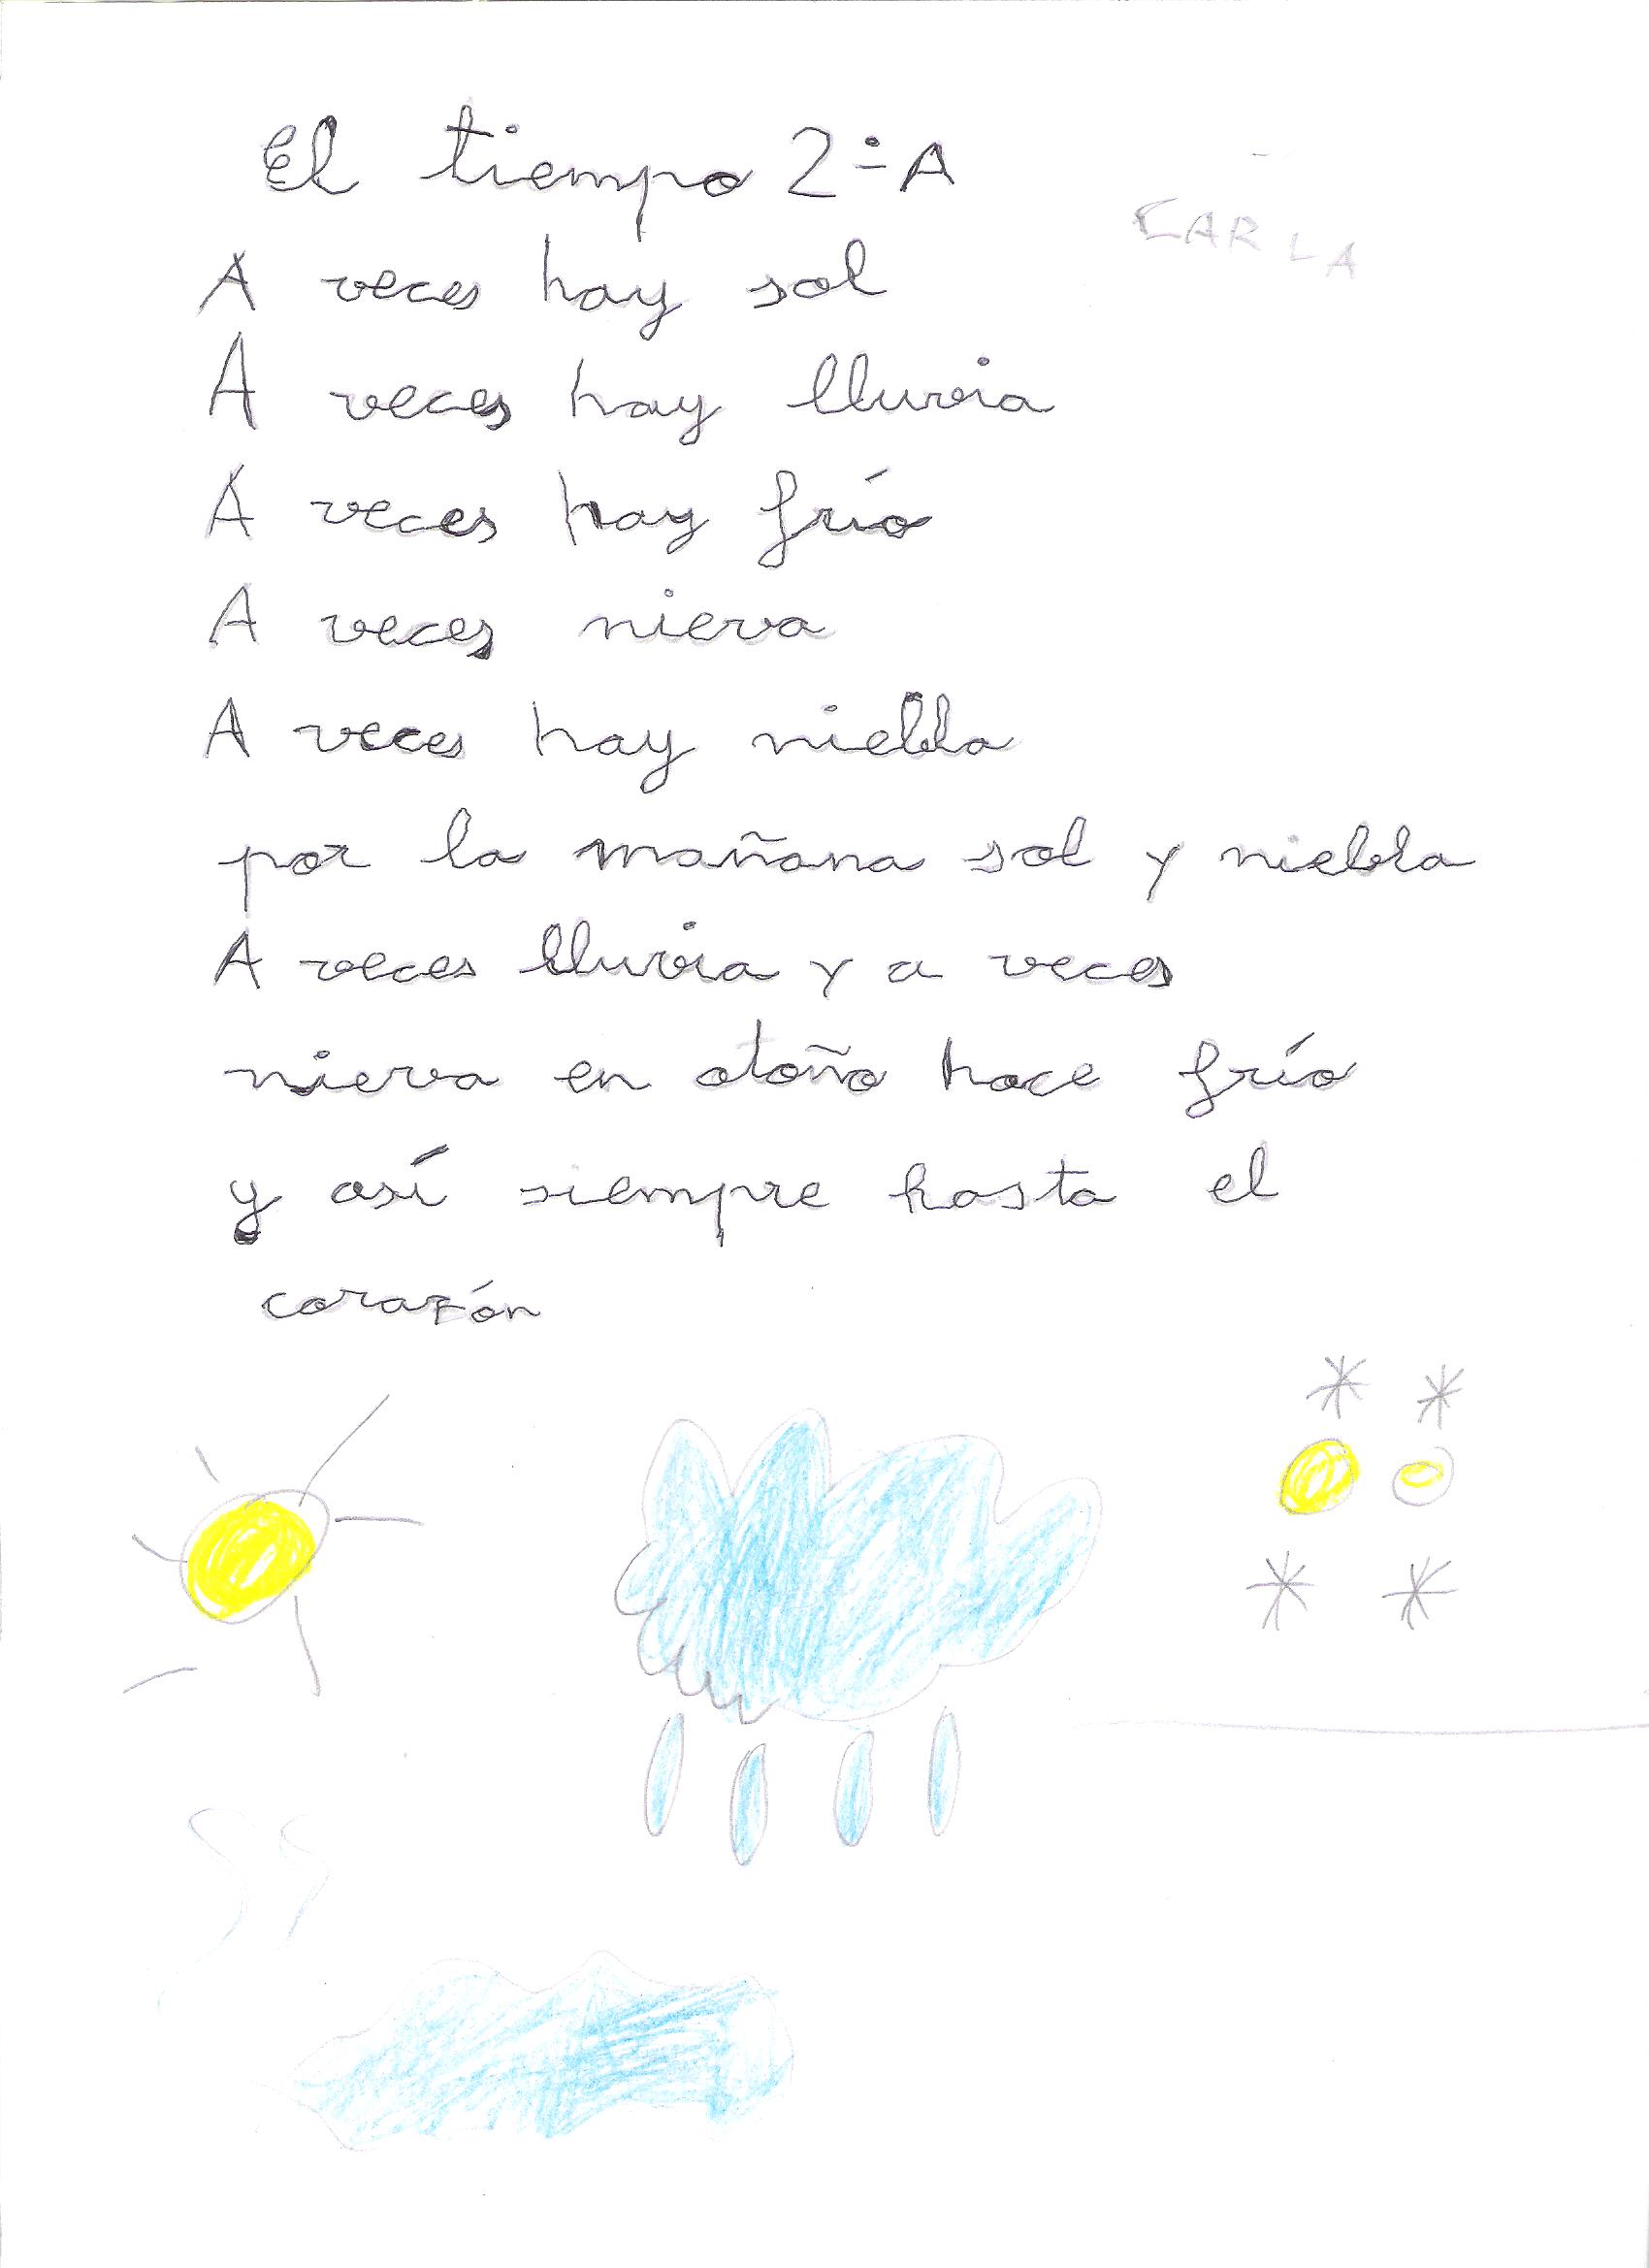 El tiempo 2º A
CARLA
A veces hay sol
A veces hay lluvia
A veces hay frío
A veces nieva
A veces hay niebla
por la mañana sol y niebla
A veces lluvia y a veces
nieva en otoño hace frío
y así siempre hasta el
corazón